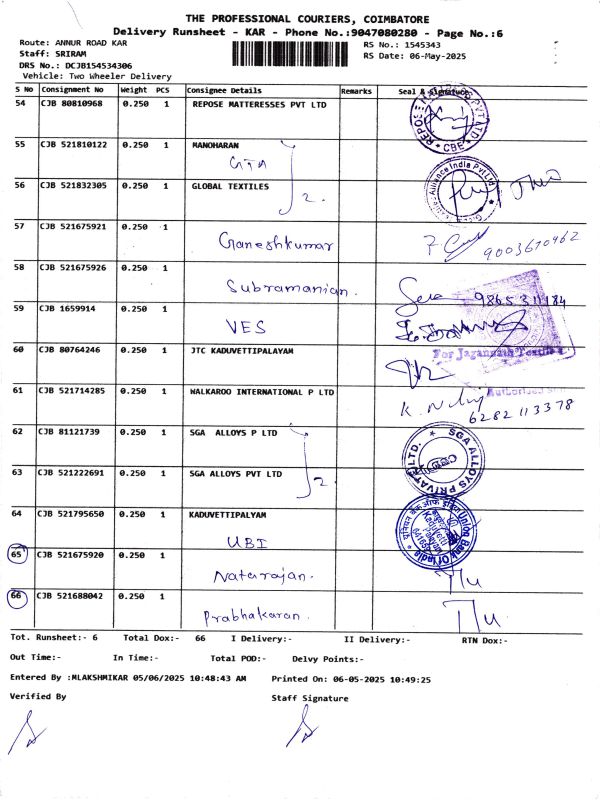 THE PROFESSIONAL COURIERS, COIMBATORE
Delivery Runsheet - KAR - Phone No.:9047080280 - Page No.:6
Route: ANNUR ROAD KAR
RS No.: 1545343
Staff: SRIRAM
RS Date: 06-May-2025
DRS No.: DCJB154534306
Vehicle: Two Wheeler Delivery
S No Consignment No Weight PCS Consignee Details Remarks Seal & Signature
54 CJB 80810968 0.250 1 REPOSE MATTERESSES PVT LTD
CBE
55 CJB 521810122 0.250 1 MANOHARAN
GTA
56 CJB 521832305 0.250 1 GLOBAL TEXTILES
2.
Alliance India Pvt Ltd
57 CJB 521675921 0.250 1
Ganeshkumar
9003670462
58 CJB 521675926 0.250 1
Subramanian.
9865311184
59 CJB 1659914 0.250 1
VES
60 CJB 80764246 0.250 1 JTC KADUVETTIPALAYAM
For Jagannath Textile
61 CJB 521714285 0.250 1 WALKAROO INTERNATIONAL P LTD
6282113378
62 CJB 81121739 0.250 1 SGA ALLOYS P LTD
SGA ALLOYS PRIVATE LTD.
63 CJB 521222691 0.250 1 SGA ALLOYS PVT LTD
2.
64 CJB 521795650 0.250 1 KADUVETTIPALYAM
UBI
Union Bank Of India
65 CJB 521675920 0.250 1
Natarajan.
66 CJB 521688042 0.250 1
Prabhakaran.
Tot. Runsheet:- 6 Total Dox:- 66 I Delivery:- II Delivery:- RTN Dox:-
Out Time:- In Time:- Total POD:- Delvy Points:-
Entered By :MLAKSHMIKAR 05/06/2025 10:48:43 AM Printed On: 06-05-2025 10:49:25
Verified By Staff Signature